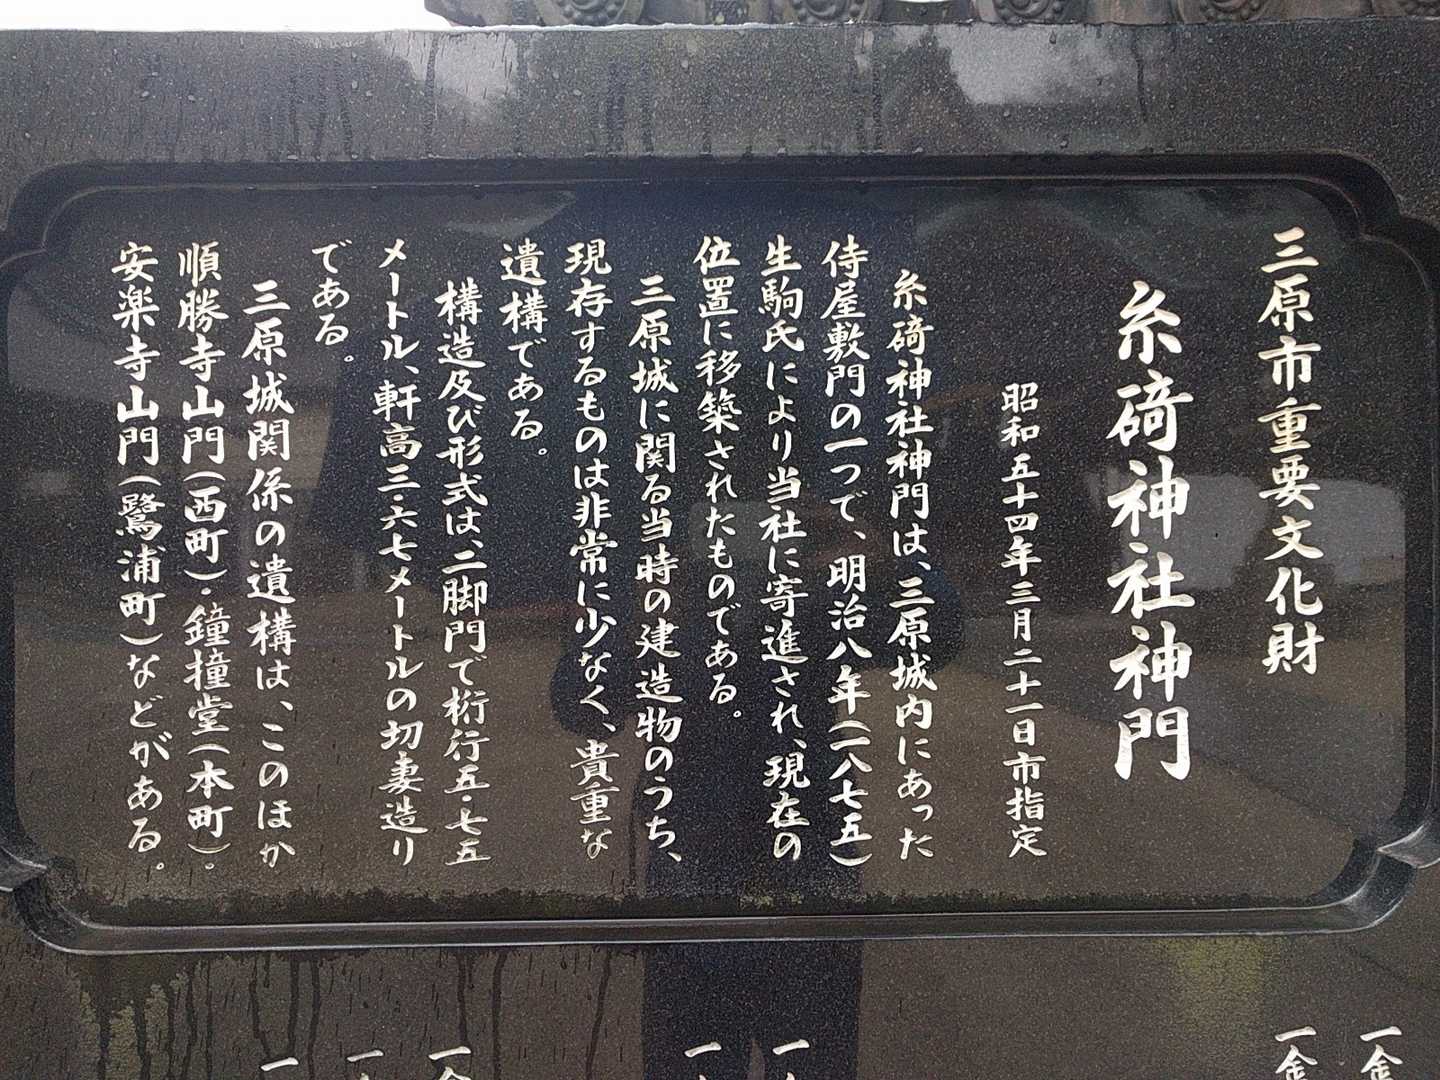 三原市重要文化財
糸碕神社神門
昭和五十四年三月二十一日市指定
糸碕神社神門は、三原城内にあった
侍屋敷門の一つで、明治八年(一八七五)
生駒氏により当社に寄進され、現在の
位置に移築されたものである。
三原城に関る当時の建造物のうち、
現存するものは非常に少なく、貴重な
遺構である。
構造及び形式は、二脚門で桁行五・七五
メートル、軒高三・六七メートルの切妻造り
である。
三原城関係の遺構は、このほか
順勝寺山門(西町)・鐘撞堂(本町)。
安楽寺山門(鷺浦町)などがある。
一金
一金
一
一
一金
一
一